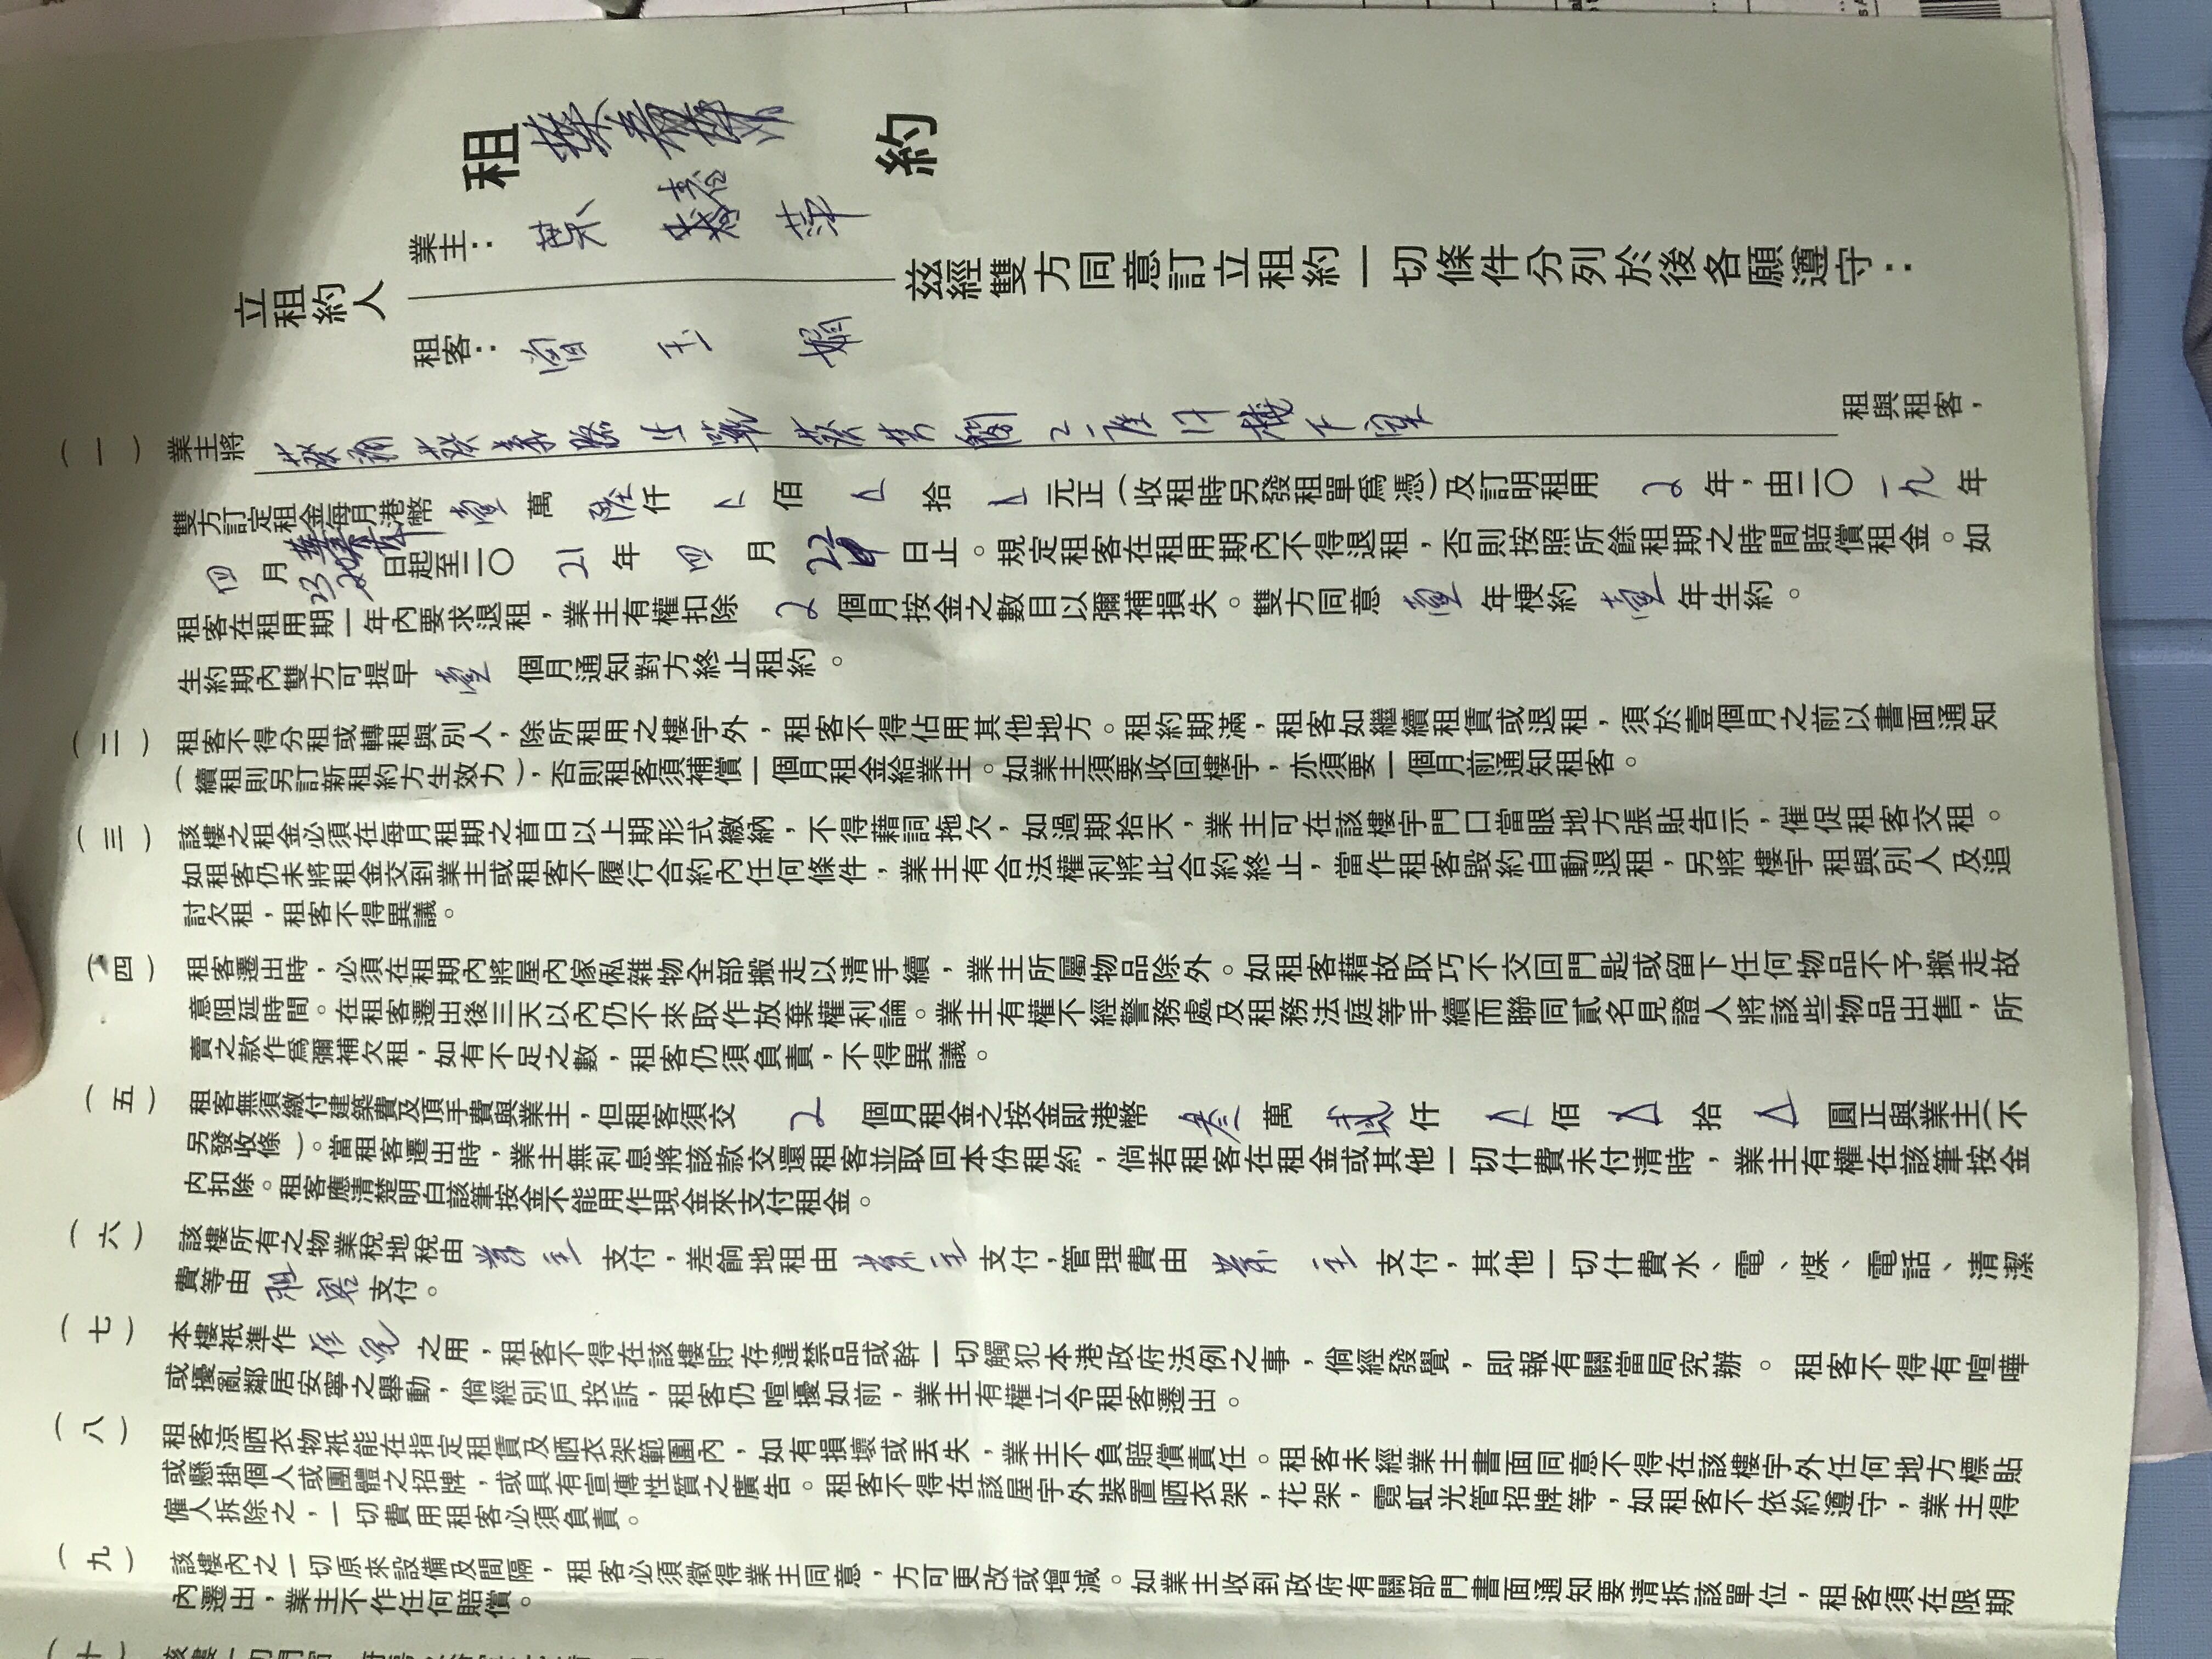 租 約
立租約人
業主：葉 萍
租客：曾玉娟
茲經雙方同意訂立租約一切條件分列於後各願遵守：
（一）業主將 葵 葵 葵 閣 2座 17樓 室 租與租客，
雙方訂定租金每月港幣 壹 萬 陸 仟 △ 佰 △ 拾 △ 元正（收租時另發租單爲憑）及訂明租用 2 年，由二〇一九年
四月 23 日起至二〇 21 年 四 月 22 日止。規定租客在租用期內不得退租，否則按照所餘租期之時間賠償租金。如
租客在租用期一年內要求退租，業主有權扣除 2 個月按金之數目以彌補損失。雙方同意 壹 年梗約 壹 年生約。
生約期內雙方可提早 壹 個月通知對方終止租約。
（二）租客不得分租或轉租與別人，除所租用之樓宇外，租客不得佔用其他地方。租約期滿，租客如繼續租賃或退租，須於壹個月之前以書面通知
（續租則另訂新租約方生效力），否則租客須補償一個月租金給業主。如業主須要收回樓宇，亦須要一個月前通知租客。
（三）該樓之租金必須在每月租期之首日以上期形式繳納，不得藉詞拖欠，如過期拾天，業主可在該樓宇門口當眼地方張貼告示，催促租客交租。
如租客仍未將租金交到業主或租客不履行合約內任何條件，業主有合法權利將此合約終止，當作租客毀約自動退租，另將樓宇租與別人及追
討欠租，租客不得異議。
（四）租客遷出時，必須在租期內將屋內傢俬雜物全部搬走以清手續，業主所屬物品除外。如租客藉故取巧不交回門匙或留下任何物品不予搬走故
意阻延時間。在租客遷出後三天以內仍不來取作放棄權利論。業主有權不經警務處及租務法庭等手續而聯同貳名見證人將該些物品出售，所
賣之款作爲彌補欠租，如有不足之數，租客仍須負責，不得異議。
（五）租客無須繳付建築費及頂手費與業主，但租客須交 2 個月租金之按金即港幣 叁 萬 貳 仟 △ 佰 △ 拾 △ 圓正與業主（不
另發收條）。當租客遷出時，業主無利息將該款交還租客並取回本份租約，倘若租客在租金或其他一切什費未付清時，業主有權在該筆按金
內扣除。租客應清楚明白該筆按金不能用作現金來支付租金。
（六）該樓所有之物業稅地稅由 業主 支付，差餉地租由 業主 支付，管理費由 業主 支付，其他一切什費水、電、煤、電話、清潔
費等由 租客 支付。
（七）本樓祇準作 住宅 之用，租客不得在該樓貯存違禁品或幹一切觸犯本港政府法例之事，倘經發覺，即報有關當局究辦。租客不得有喧嘩
或擾亂鄰居安寧之舉動，倘經別戶投訴，租客仍喧擾如前，業主有權立令租客遷出。
（八）租客涼晒衣物祇能在指定租賃及晒衣架範圍內，如有損壞或丟失，業主不負賠償責任。租客未經業主書面同意不得在該樓宇外任何地方標貼
或懸掛個人或團體之招牌，或具有宣傳性質之廣告。租客不得在該屋宇外裝置晒衣架，花架，霓虹光管招牌等，如租客不依約遵守，業主得
僱人拆除之，一切費用租客必須負責。
（九）該樓內之一切原來設備及間隔，租客必須徵得業主同意，方可更改或增減。如業主收到政府有關部門書面通知要清拆該單位，租客須在限期
內遷出，業主不作任何賠償。
（十）該樓一切門窗